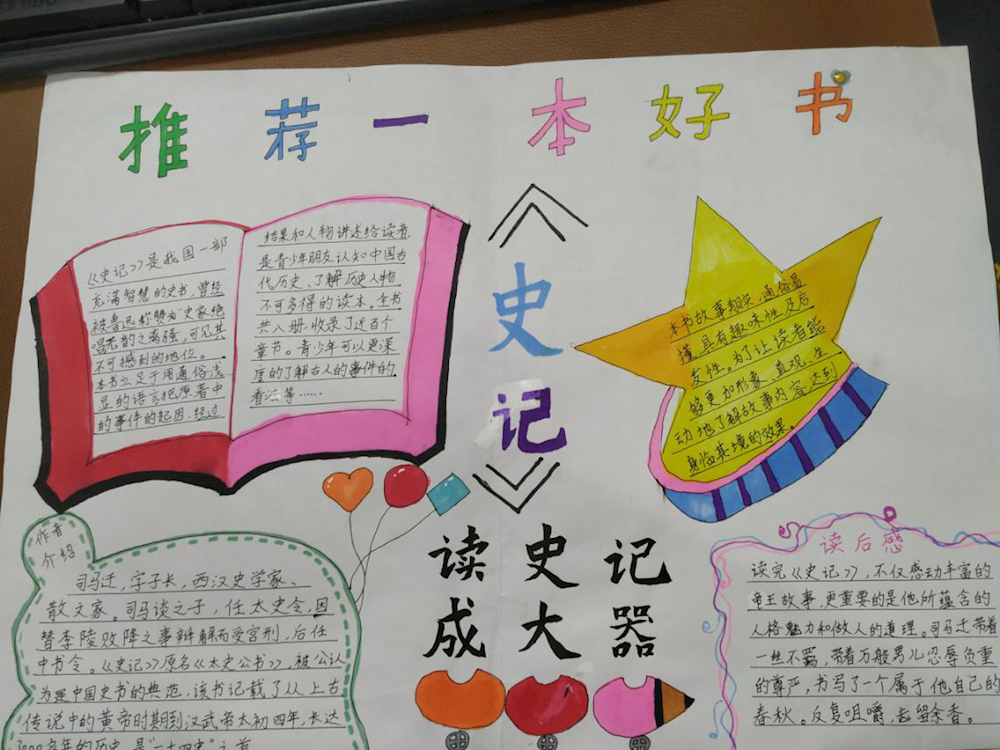 推荐一本好书
《史记》
《史记》是我国一部
充满智慧的史书,曾经
被鲁迅称赞为"史家绝
唱无韵之离骚,可见其
不可撼动的地位。
本书立足于用通俗浅
豆的语言把原著中
的事件的起因、经过
结果和人物讲述给读者
是青少年朋友认知中国古
代历史、了解历史人物
不可多得的读本。全书
共八册.收录了近百个
章节。青少年可以更深
度的了解古人的事件的
看法等……
本书故事翔实,通俗易
懂,具有趣味性及启
发性。为了让读者能
够更加形象、直观、生
动地了解故事内容,达到
身临其境的效果。
读史记
成大器
作者
介绍
司马迁,字子长,西汉史学家、
散文家。司马谈之子,任太史令,因
替李陵败降之事辩解而受宫刑,后任
中书令。《史记》原名《太史公书》,被公认
为是中国史书的典范,该书记载了从上古
传说中的黄帝时期到汉武帝太初四年,长达
3000多年的历史,是"二十四史"之首
读后感
读完《史记》,不仅感动丰富的
帝王故事,更重要的是他所蕴含的
人格魅力和做人的道理。司马迁带着
一丝不羁,带着万般男儿忍辱负重
的尊严,书写了一个属于他自己的
春秋。反复咀嚼,齿留余香。